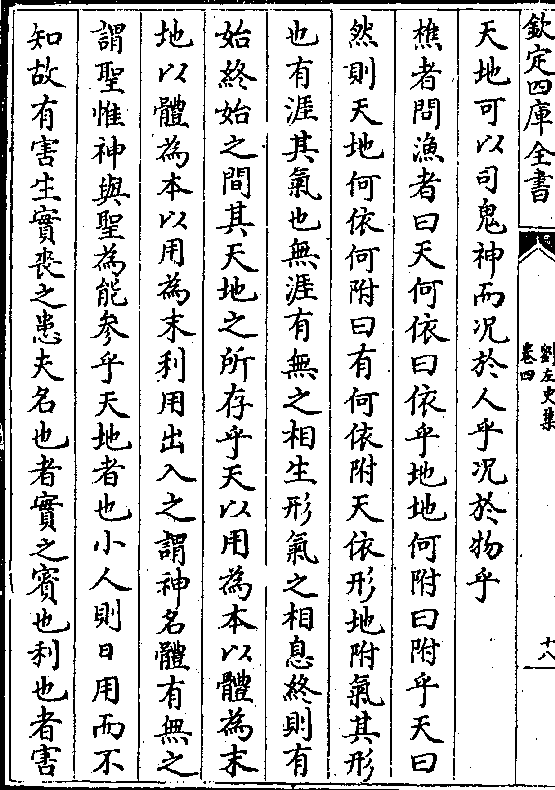 欽定四庫全書
劉左史集
卷四
十八
天地可以司鬼神而况於人乎况於物乎
樵者問漁者曰天何依曰依乎地地何附曰附乎天曰
然則天地何依何附曰有何依附天依形地附氣其形
也有涯其氣也無涯有無之相生形氣之相息終則有
始終始之間其天地之所存乎天以用為本以體為末
地以體為本以用為末利用出入之謂神名體有無之
謂聖惟神與聖為能參乎天地者也小人則日用而不
知故有害生實喪之患夫名也者實之賓也利也者害